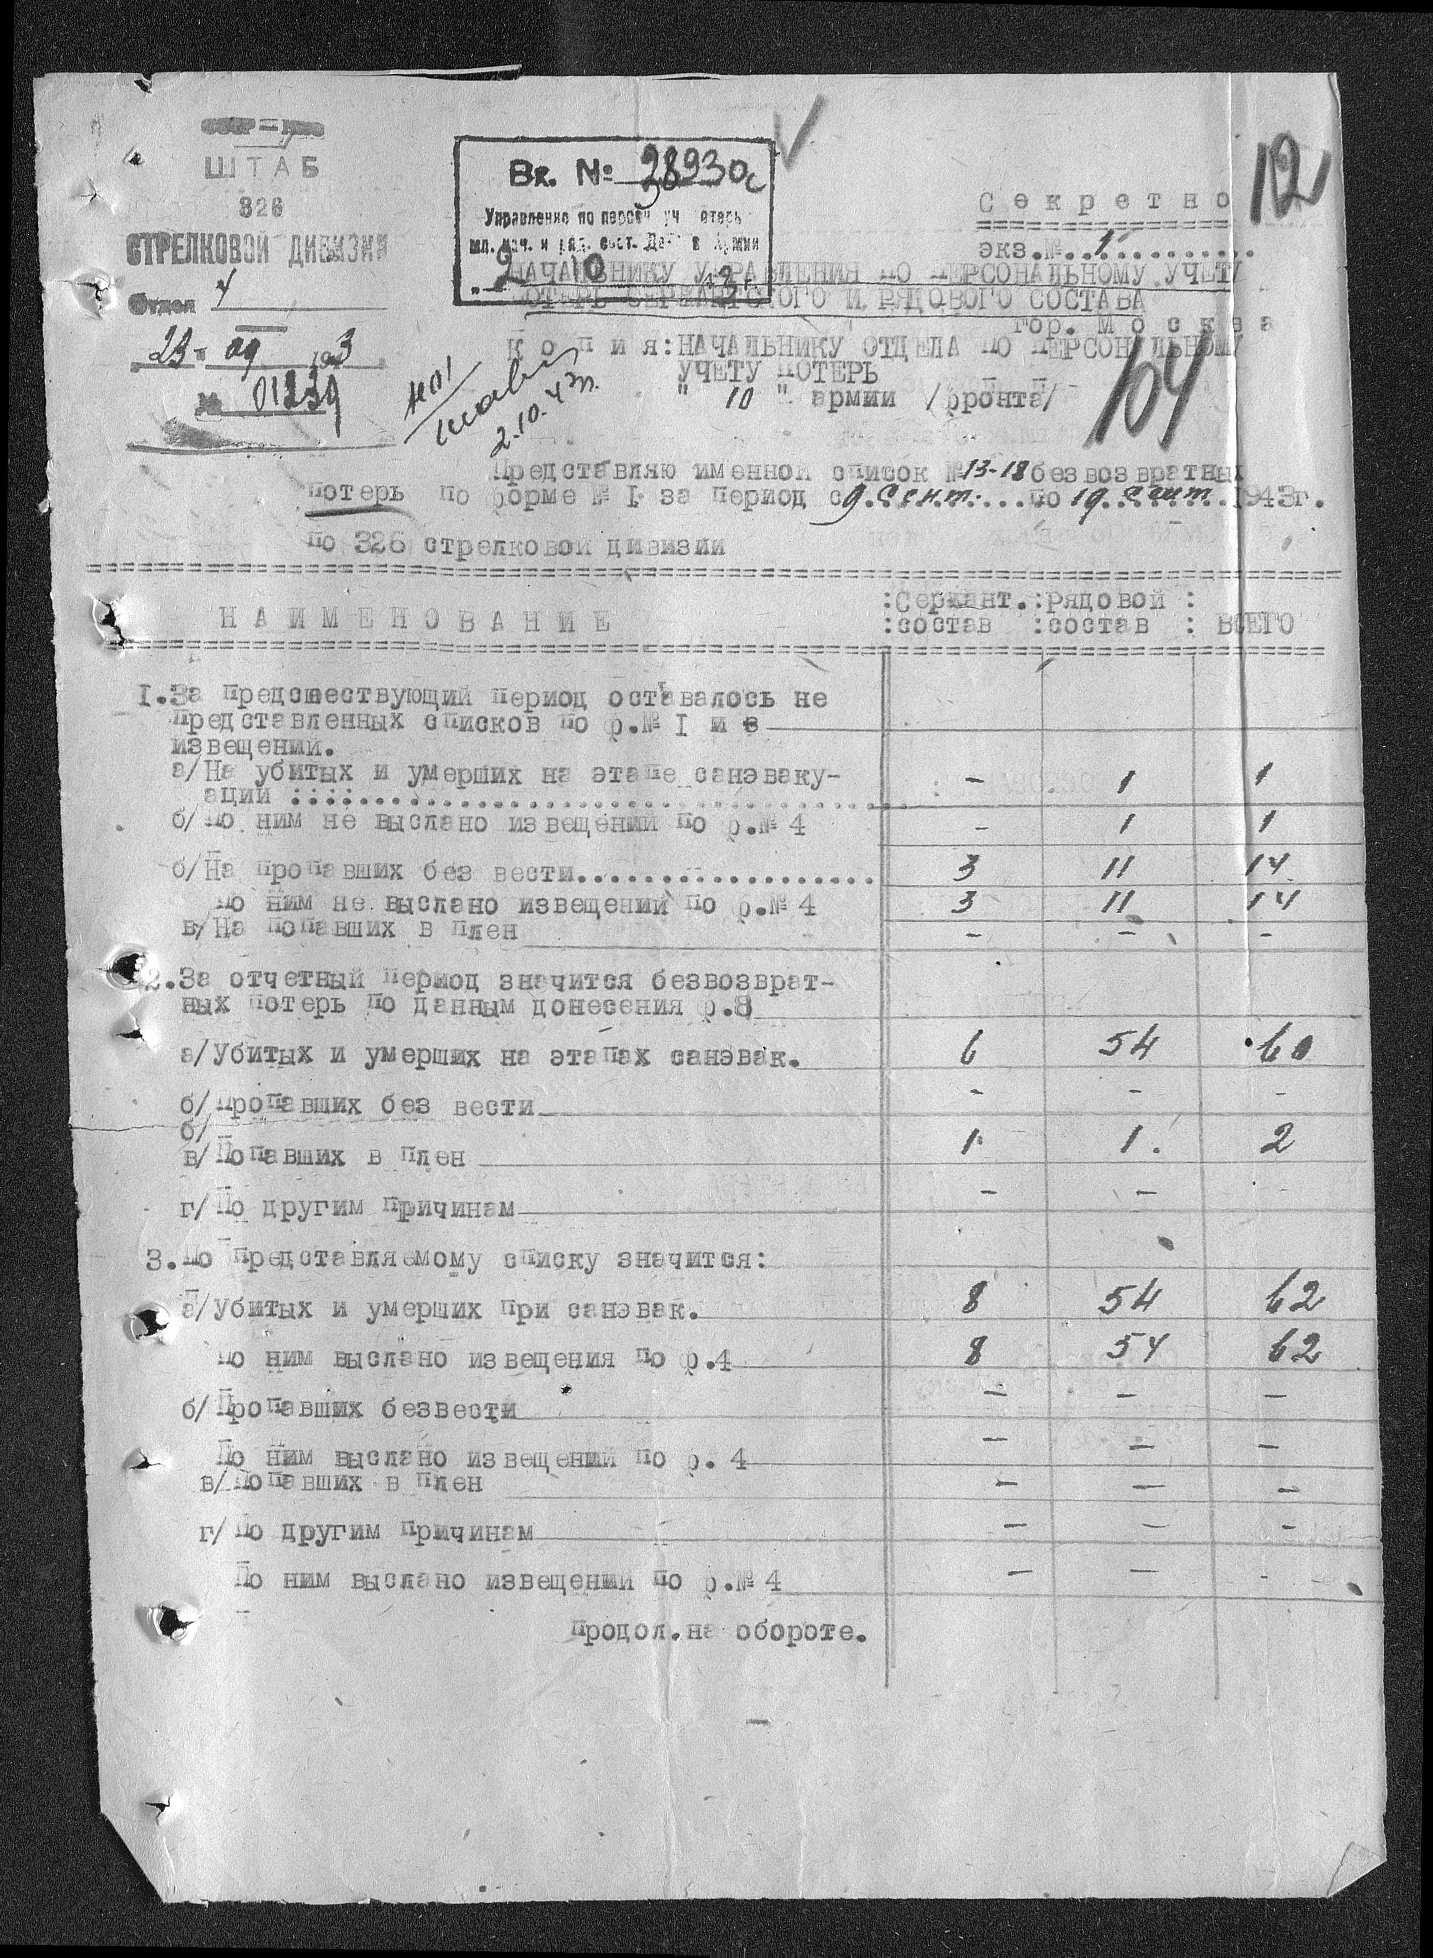 ШТАБ
326
СТРЕЛКОВОЙ ДИВИЗИИ
Отдел 4
23 - 09 1943
№ 01239
Вх. № 28930с
Управление по персон уч потерь
мл. нач. и ряд. сост. Де в Армии
2 10 43
12
Секретно
экз.№..1...........
НАЧАЛЬНИКУ УПРАВЛЕНИЯ ПО ПЕРСОНАЛЬНОМУ УЧЕТУ
ПОТЕРЬ СЕРЖАНТСКОГО И РЯДОВОГО СОСТАВА
гор. Москва
Копия: НАЧАЛЬНИКУ ОТДЕЛА ПО ПЕРСОНАЛЬНОМУ
УЧЕТУ ПОТЕРЬ
" 10 " армии /фронта/
2.10.43г.
104
Представляю именной список №13-18 безвозвратных
потерь по форме № I за период с 9.сент....по 19.сент..1943г.
по 326 стрелковой дивизии
НАИМЕНОВАНИЕ :Сержант.:рядовой :
:состав :состав : ВСЕГО
I.За предшествующий период оставалось не
представленных списков по ф.№ I и в
извещений.
а/На убитых и умерших на этапе санэваку- - 1 1
ации ::::......................................
б/по ним не выслано извещений по ф.№ 4 - 1 1
б/На пропавших без вести................... 3 11 14
по ним не выслано извещений по ф.№ 4 3 11 14
в/На попавших в плен - - -
2.За отчетный период значится безвозврат-
ных потерь по данным донесения ф.8
а/Убитых и умерших на этапах санэвак. 6 54 60
б/Пропавших без вести - - -
б/
в/Попавших в плен 1 1. 2
г/По другим причинам - -
3.По представляемому списку значится:
а/Убитых и умерших при санэвак. 8 54 62
по ним выслано извещения по ф.4 8 54 62
б/Пропавших безвести - - -
По ним выслано извещений по ф. 4 - - -
в/Попавших в плен - - -
г/По другим причинам - - -
По ним выслано извещений по ф.№ 4 - - -
Продол.на обороте.